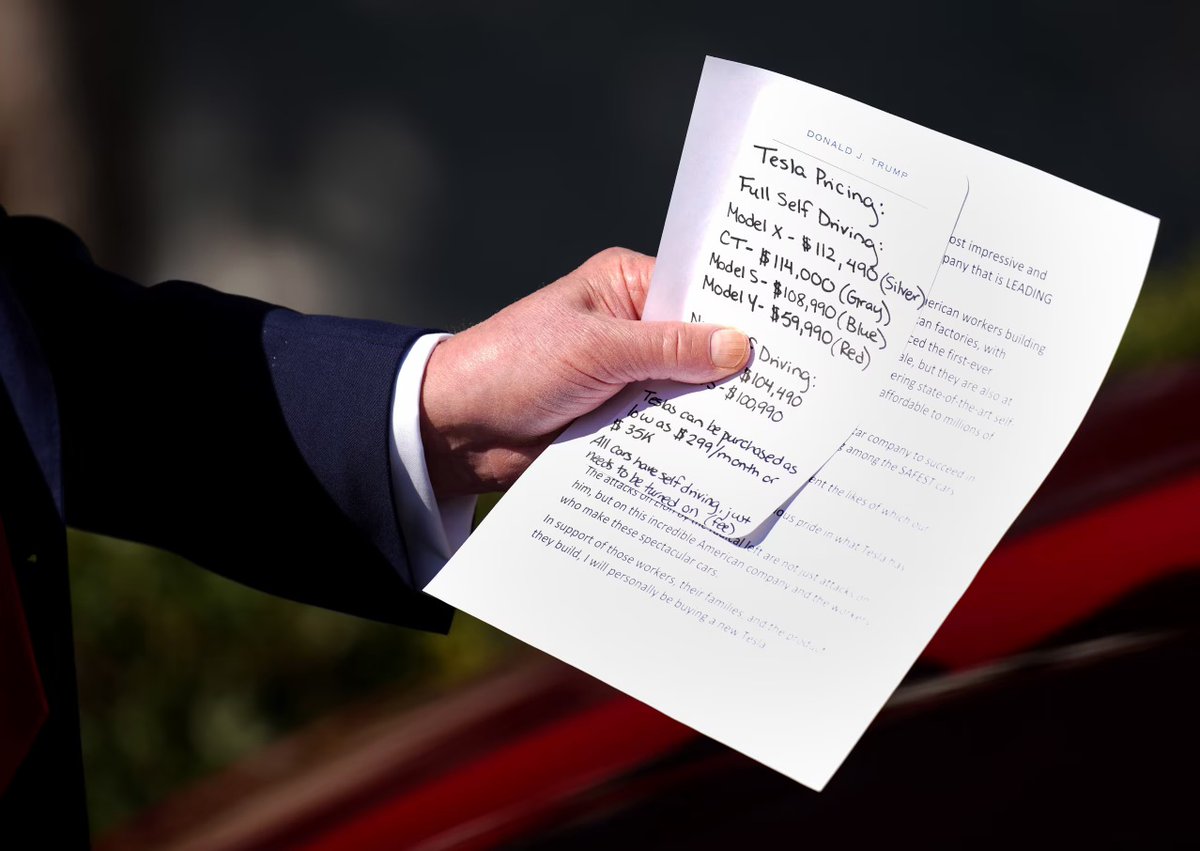 DONALD J. TRUMP
Tesla Pricing:
Full Self Driving:
Model X - $112,490 (Silver)
CT - $114,000 (Gray)
Model S - $108,990 (Blue)
Model Y - $59,990 (Red)
Driving:
$104,490
- $100,990
Teslas can be purchased as
low as $299/month or
$35K
All cars have self driving, just
needs to be turned on (fee)
ost impressive and
pany that is LEADING
erican workers building
an factories, with
ced the first-ever
ale, but they are also at
ering state-of-the-art self
affordable to millions of
car company to succeed in
among the SAFEST cars
ent the likes of which our
ous pride in what Tesla has
The attacks on left are not just attacks on
him, but on this incredible American company and the workers
who make these spectacular cars.
In support of those workers, their families, and the product
they build, I will personally be buying a new Tesla